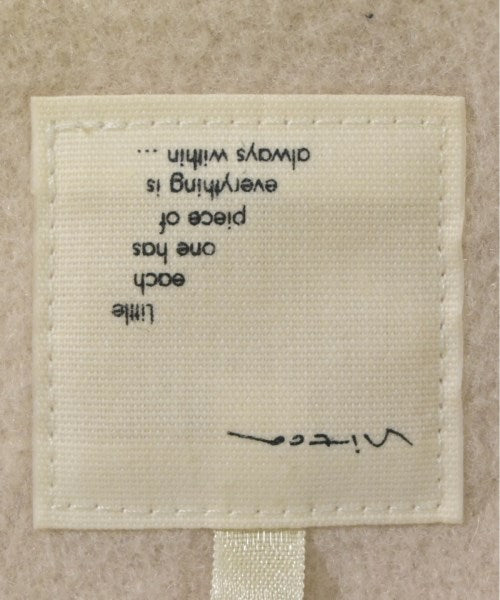 Nitca
Little
each
one has
piece of
everything is
always within ...